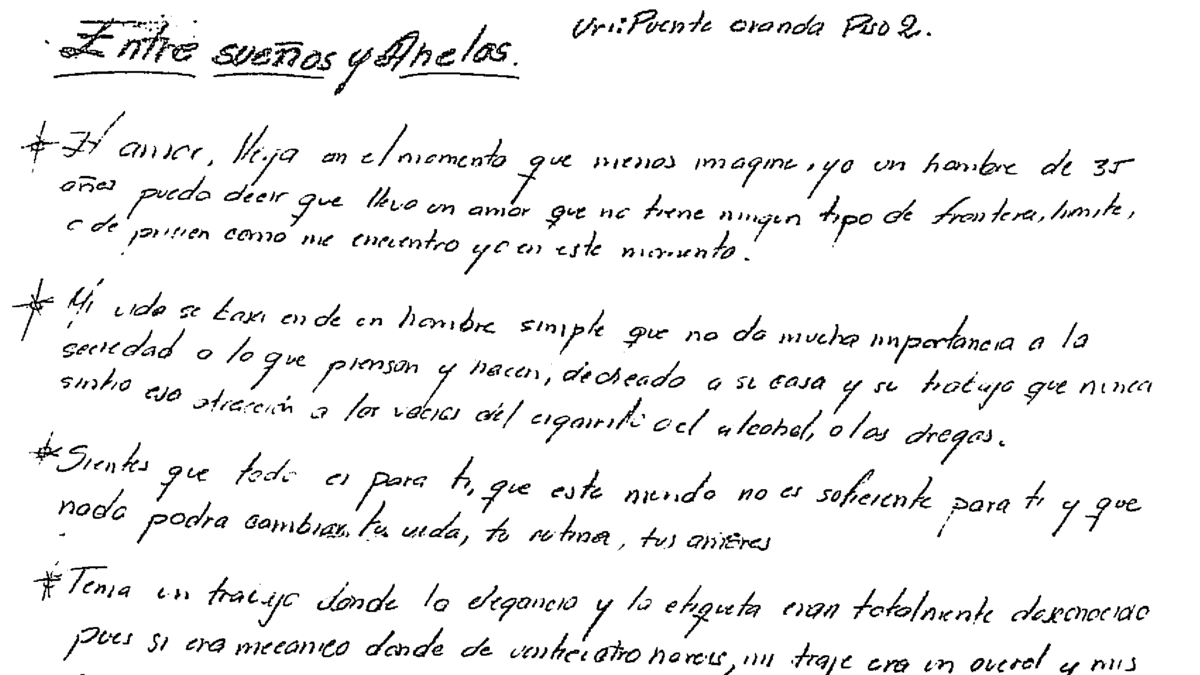 Uri: Puente aranda Piso 2.
Entre sueños y Anelos.
El amor, llega en el momento que menos imagine, yo un hombre de 35
años puedo decir que llevo un amor que no tiene ningun tipo de frontera, limite,
o de prision como me encuentro yo en este momento.
Mi vida se basa en de un hombre simple que no da mucha importancia a la
sociedad o lo que piensan y hacen, decreado a su casa y su trabajo que nunca
sintio esa atracción a los vacios del cigarrillo el alcohol, o las drogas.
Sientes que todo es para ti, que este mundo no es suficiente para ti y que
nada podra cambiar tu vida, tu rutina, tus amores
Tenia un trabajo donde la elegancia y la etiqueta eran totalmente desconocido
pues si era mecanico donde de veinticuatro horas, mi traje era un overol y mis